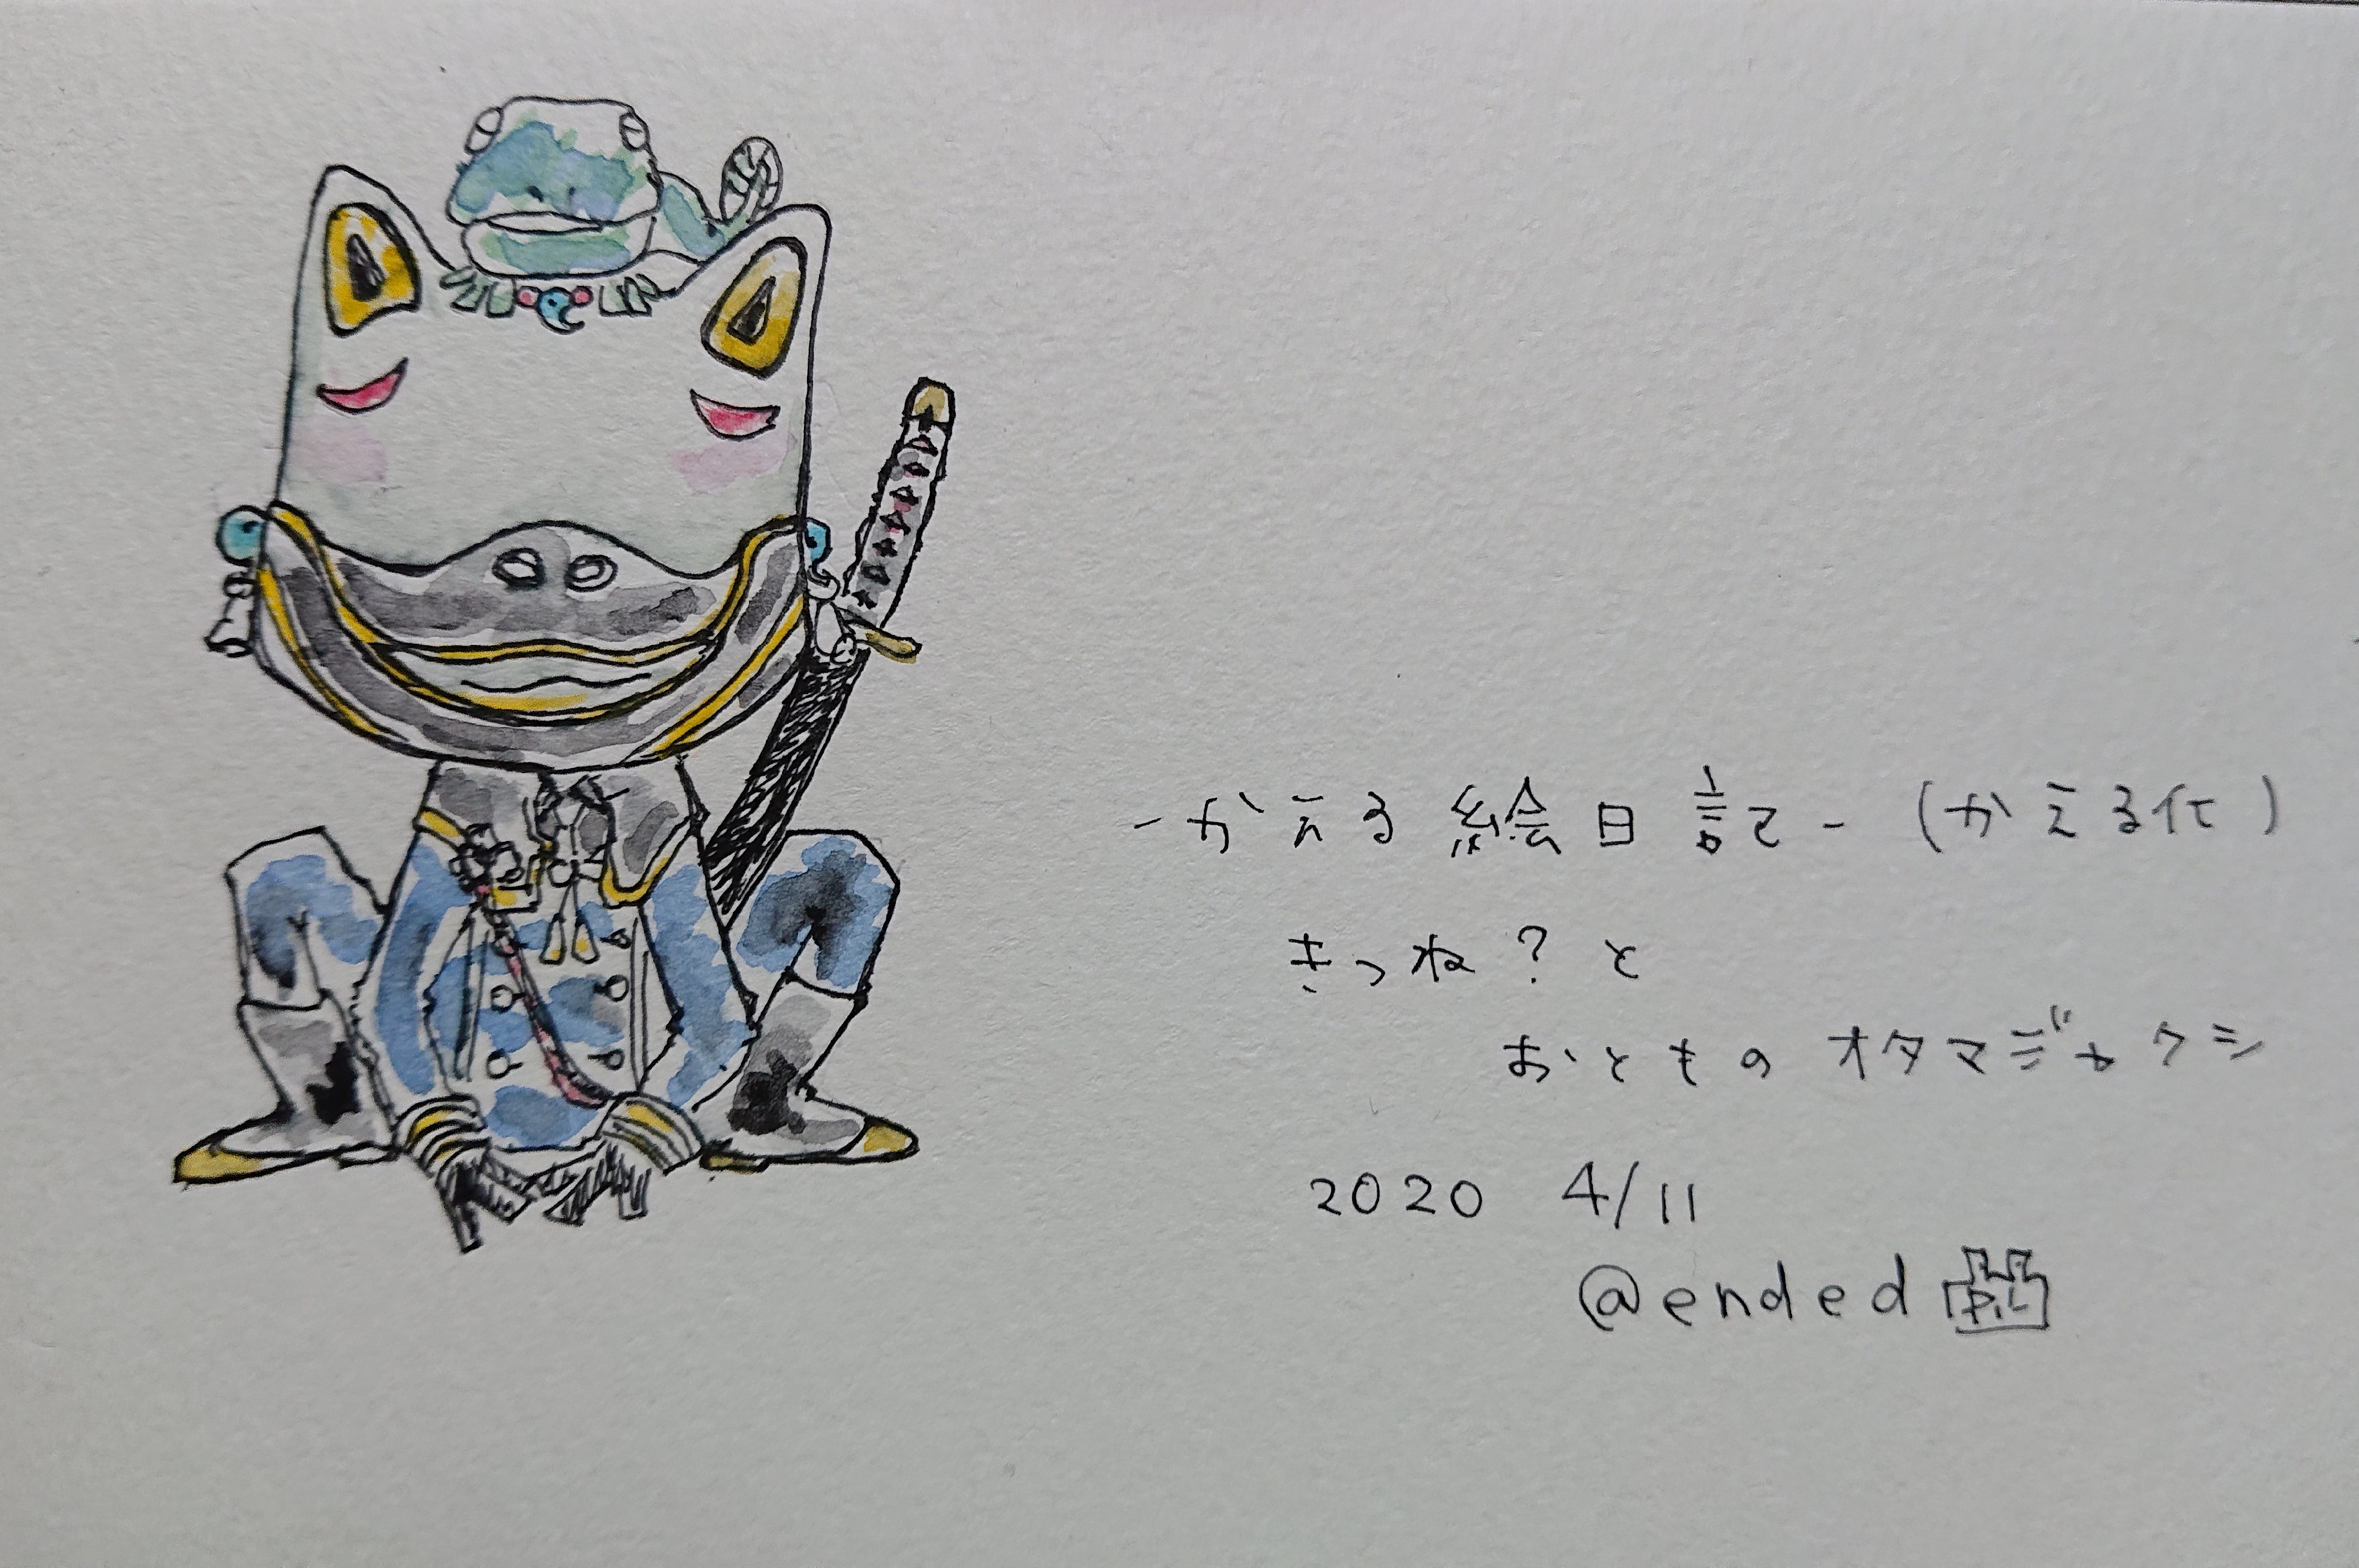 -かえる絵日記-(かえる化)
きつね?と
おとものオタマジャクシ
2020 4/11
@ended